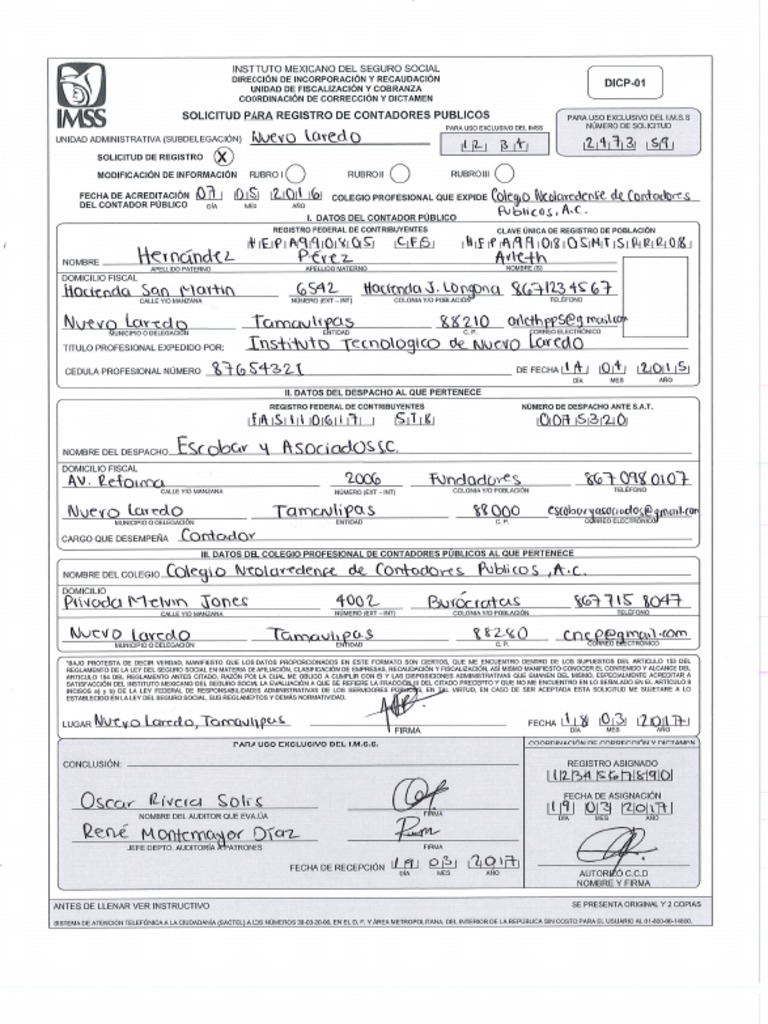 INSTITUTO MEXICANO DEL SEGURO SOCIAL
DIRECCIÓN DE INCORPORACIÓN Y RECAUDACIÓN
UNIDAD DE FISCALIZACIÓN Y COBRANZA
COORDINACIÓN DE CORRECCIÓN Y DICTAMEN
DICP-01
IMSS
SOLICITUD PARA REGISTRO DE CONTADORES PUBLICOS
UNIDAD ADMINISTRATIVA (SUBDELEGACIÓN) Nuevo Laredo
PARA USO EXCLUSIVO DEL IMSS
12 34
PARA USO EXCLUSIVO DEL I.M.S.S
NÚMERO DE SOLICITUD
2473 59
SOLICITUD DE REGISTRO X
MODIFICACIÓN DE INFORMACIÓN RUBRO I RUBRO II RUBRO III
FECHA DE ACREDITACIÓN DEL CONTADOR PÚBLICO 07 05 2016
DÍA MES AÑO
COLEGIO PROFESIONAL QUE EXPIDE Colegio Neolaredense de Contadores Publicos, A.C.
I. DATOS DEL CONTADOR PÚBLICO
REGISTRO FEDERAL DE CONTRIBUYENTES CLAVE ÚNICA DE REGISTRO DE POBLACIÓN
HEPA990805 CFS
NOMBRE Hernández Pérez Arleth
APELLIDO PATERNO APELLIDO MATERNO NOMBRE (S)
DOMICILIO FISCAL
Hacienda San Martin 6542 Hacienda J. Longoria 8671234567
CALLE Y/O MANZANA NÚMERO (EXT - INT) COLONIA Y/O POBLACIÓN TELÉFONO
Nuevo Laredo Tamaulipas 88210 arlethpp5@gmail.com
MUNICIPIO O DELEGACIÓN ENTIDAD C.P. CORREO ELECTRÓNICO
TITULO PROFESIONAL EXPEDIDO POR: Instituto Tecnologico de Nuevo Laredo
CEDULA PROFESIONAL NÚMERO 87654321 DE FECHA 14 04 2015
DÍA MES AÑO
II. DATOS DEL DESPACHO AL QUE PERTENECE
REGISTRO FEDERAL DE CONTRIBUYENTES NÚMERO DE DESPACHO ANTE S.A.T.
EAS110617 ST8 0075320
NOMBRE DEL DESPACHO Escobar y Asociados SC.
DOMICILIO FISCAL
AV. Reforma 2006 Fundadores 867 098 0107
CALLE Y/O MANZANA NÚMERO (EXT - INT) COLONIA Y/O POBLACIÓN TELÉFONO
Nuevo Laredo Tamaulipas 88000 escobaryasociados@gmail.com
MUNICIPIO O DELEGACIÓN ENTIDAD C.P. CORREO ELECTRÓNICO
CARGO QUE DESEMPEÑA Contador
III. DATOS DEL COLEGIO PROFESIONAL DE CONTADORES PÚBLICOS AL QUE PERTENECE
NOMBRE DEL COLEGIO Colegio Neolaredense de Contadores Publicos, A.C.
DOMICILIO
Privada Melvin Jones 4002 Burócratas 867 715 8047
CALLE Y/O MANZANA NÚMERO (EXT - INT) COLONIA Y/O POBLACIÓN TELÉFONO
Nuevo Laredo Tamaulipas 88280 cncp@gmail.com
MUNICIPIO O DELEGACIÓN ENTIDAD C.P. CORREO ELECTRÓNICO
"BAJO PROTESTA DE DECIR VERDAD, MANIFIESTO QUE LOS DATOS PROPORCIONADOS EN ESTE FORMATO SON CIERTOS, QUE ME ENCUENTRO DENTRO DE LOS SUPUESTOS DEL ARTICULO 153 DEL
REGLAMENTO DE LA LEY DEL SEGURO SOCIAL EN MATERIA DE AFILIACIÓN, CLASIFICACIÓN DE EMPRESAS, RECAUDACIÓN Y FISCALIZACIÓN, ASÍ MISMO MANIFIESTO CONOCER EL CONTENIDO Y ALCANCE DEL
ARTICULO 154 DEL REGLAMENTO ANTES CITADO, RAZÓN POR LA CUAL ME OBLIGO A CUMPLIR CON EL Y LAS DISPOSICIONES ADMINISTRATIVAS QUE EMANEN DEL MISMO, ESPECIALMENTE ACREDITAR A
SATISFACCIÓN DEL INSTITUTO MEXICANO DEL SEGURO SOCIAL LA EVALUACIÓN A QUE SE REFIERE LA FRACCIÓN III DEL CITADO PRECEPTO Y QUE NO ME ENCUENTRO EN LO SEÑALADO EN EL ARTICULO 8
INCISOS a) y b) DE LA LEY FEDERAL DE RESPONSABILIDADES ADMINISTRATIVAS DE LOS SERVIDORES PÚBLICOS, EN TAL VIRTUD, EN CASO DE SER ACEPTADA ESTA SOLICITUD ME SUJETARE A LO
ESTABLECIDO EN LA LEY DEL SEGURO SOCIAL, SUS REGLAMENTOS Y DEMÁS NORMATIVIDAD.
LUGAR Nuevo Laredo, Tamaulipas FIRMA FECHA 18 03 2017
DÍA MES AÑO
PARA USO EXCLUSIVO DEL I.M.S.S. COORDINACIÓN DE CORRECCIÓN Y DICTAMEN
CONCLUSIÓN:
REGISTRO ASIGNADO
1234567890
FECHA DE ASIGNACIÓN
19 03 2017
DÍA MES AÑO
Oscar Rivera Solis
NOMBRE DEL AUDITOR QUE EVALÚA FIRMA
René Montemayor Díaz
JEFE DEPTO. AUDITORÍA A PATRONES FIRMA
FECHA DE RECEPCIÓN 19 03 2017
DÍA MES AÑO
AUTORIZÓ C.C.D
NOMBRE Y FIRMA
ANTES DE LLENAR VER INSTRUCTIVO SE PRESENTA ORIGINAL Y 2 COPIAS
SISTEMA DE ATENCIÓN TELEFÓNICA A LA CIUDADANÍA (SACTEL) A LOS NÚMEROS 30-03-20-00, EN EL D. F. Y ÁREA METROPOLITANA, DEL INTERIOR DE LA REPÚBLICA SIN COSTO PARA EL USUARIO AL